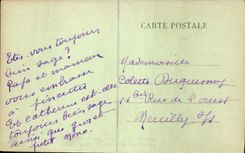 CARTE POSTALE
Etes-vous toujours
bien sage ?
Papa et maman
vous embrasse
à pincettes
Et Catherine est-elle
toujours bien sage
ainsi que grosse
petit Nono.
Mademoiselle
Colette
bis Rue de l'ouest
Neuilly s/s